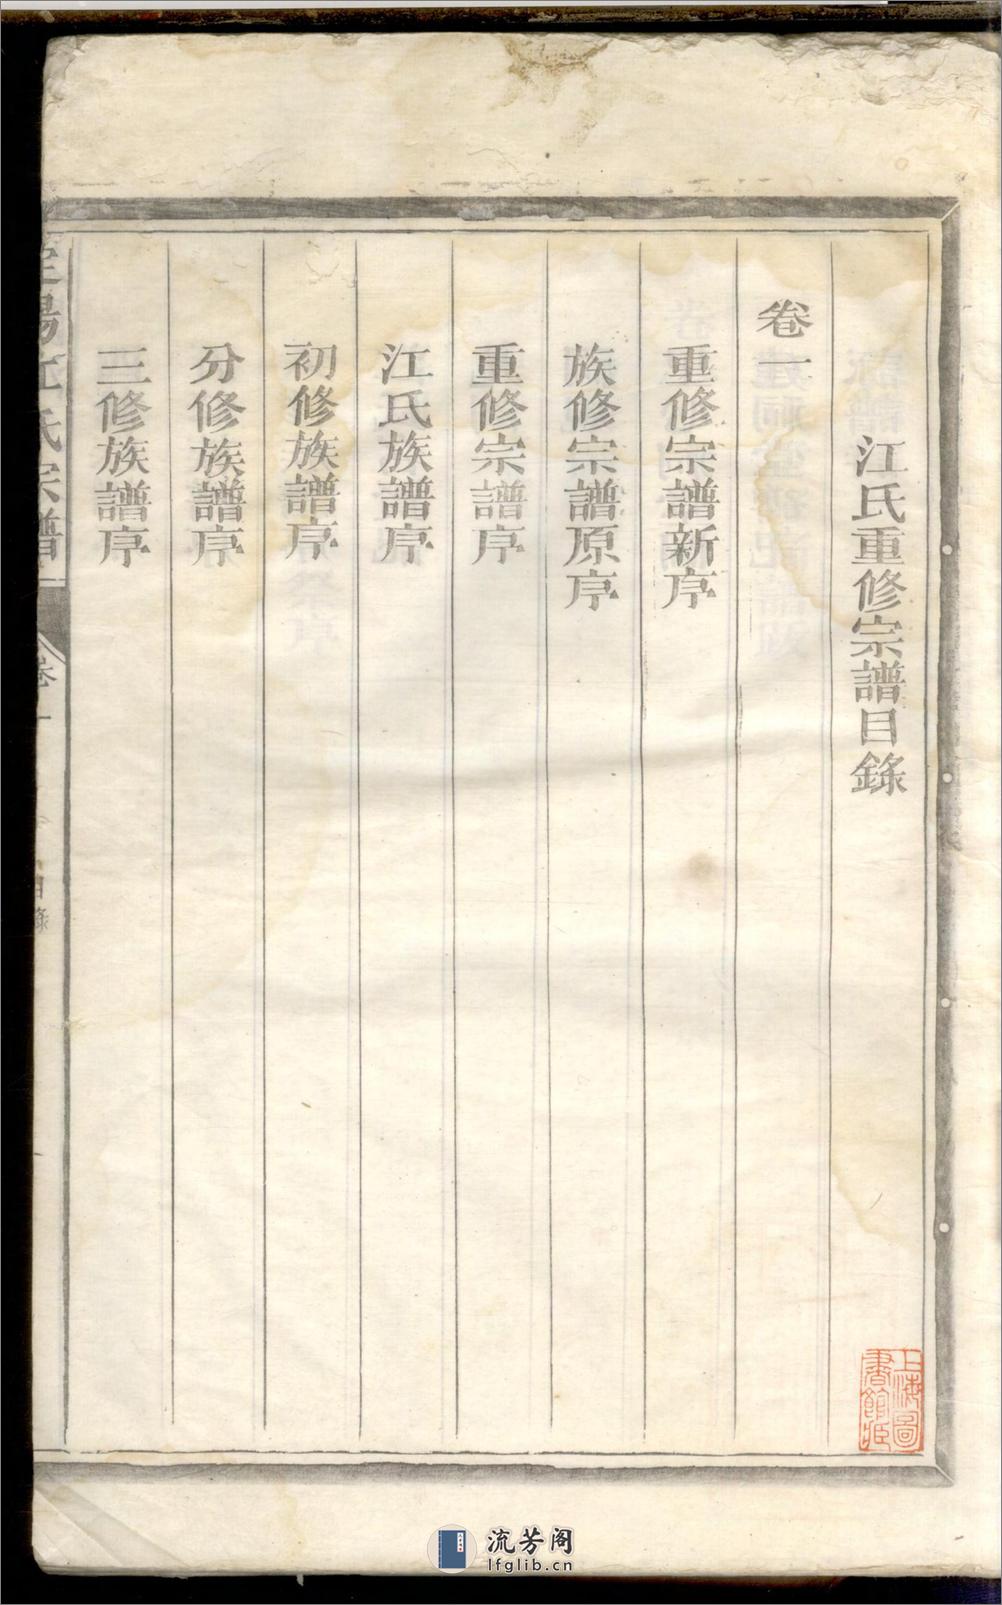 江氏重修宗譜目錄
卷一
重修宗譜新序
族修宗譜原序
重修宗譜序
江氏族譜序
初修族譜序
分修族譜序
三修族譜序
陽江氏宗譜
卷一
目錄
上海圖
書館藏
流芳阁
lfglib.cn